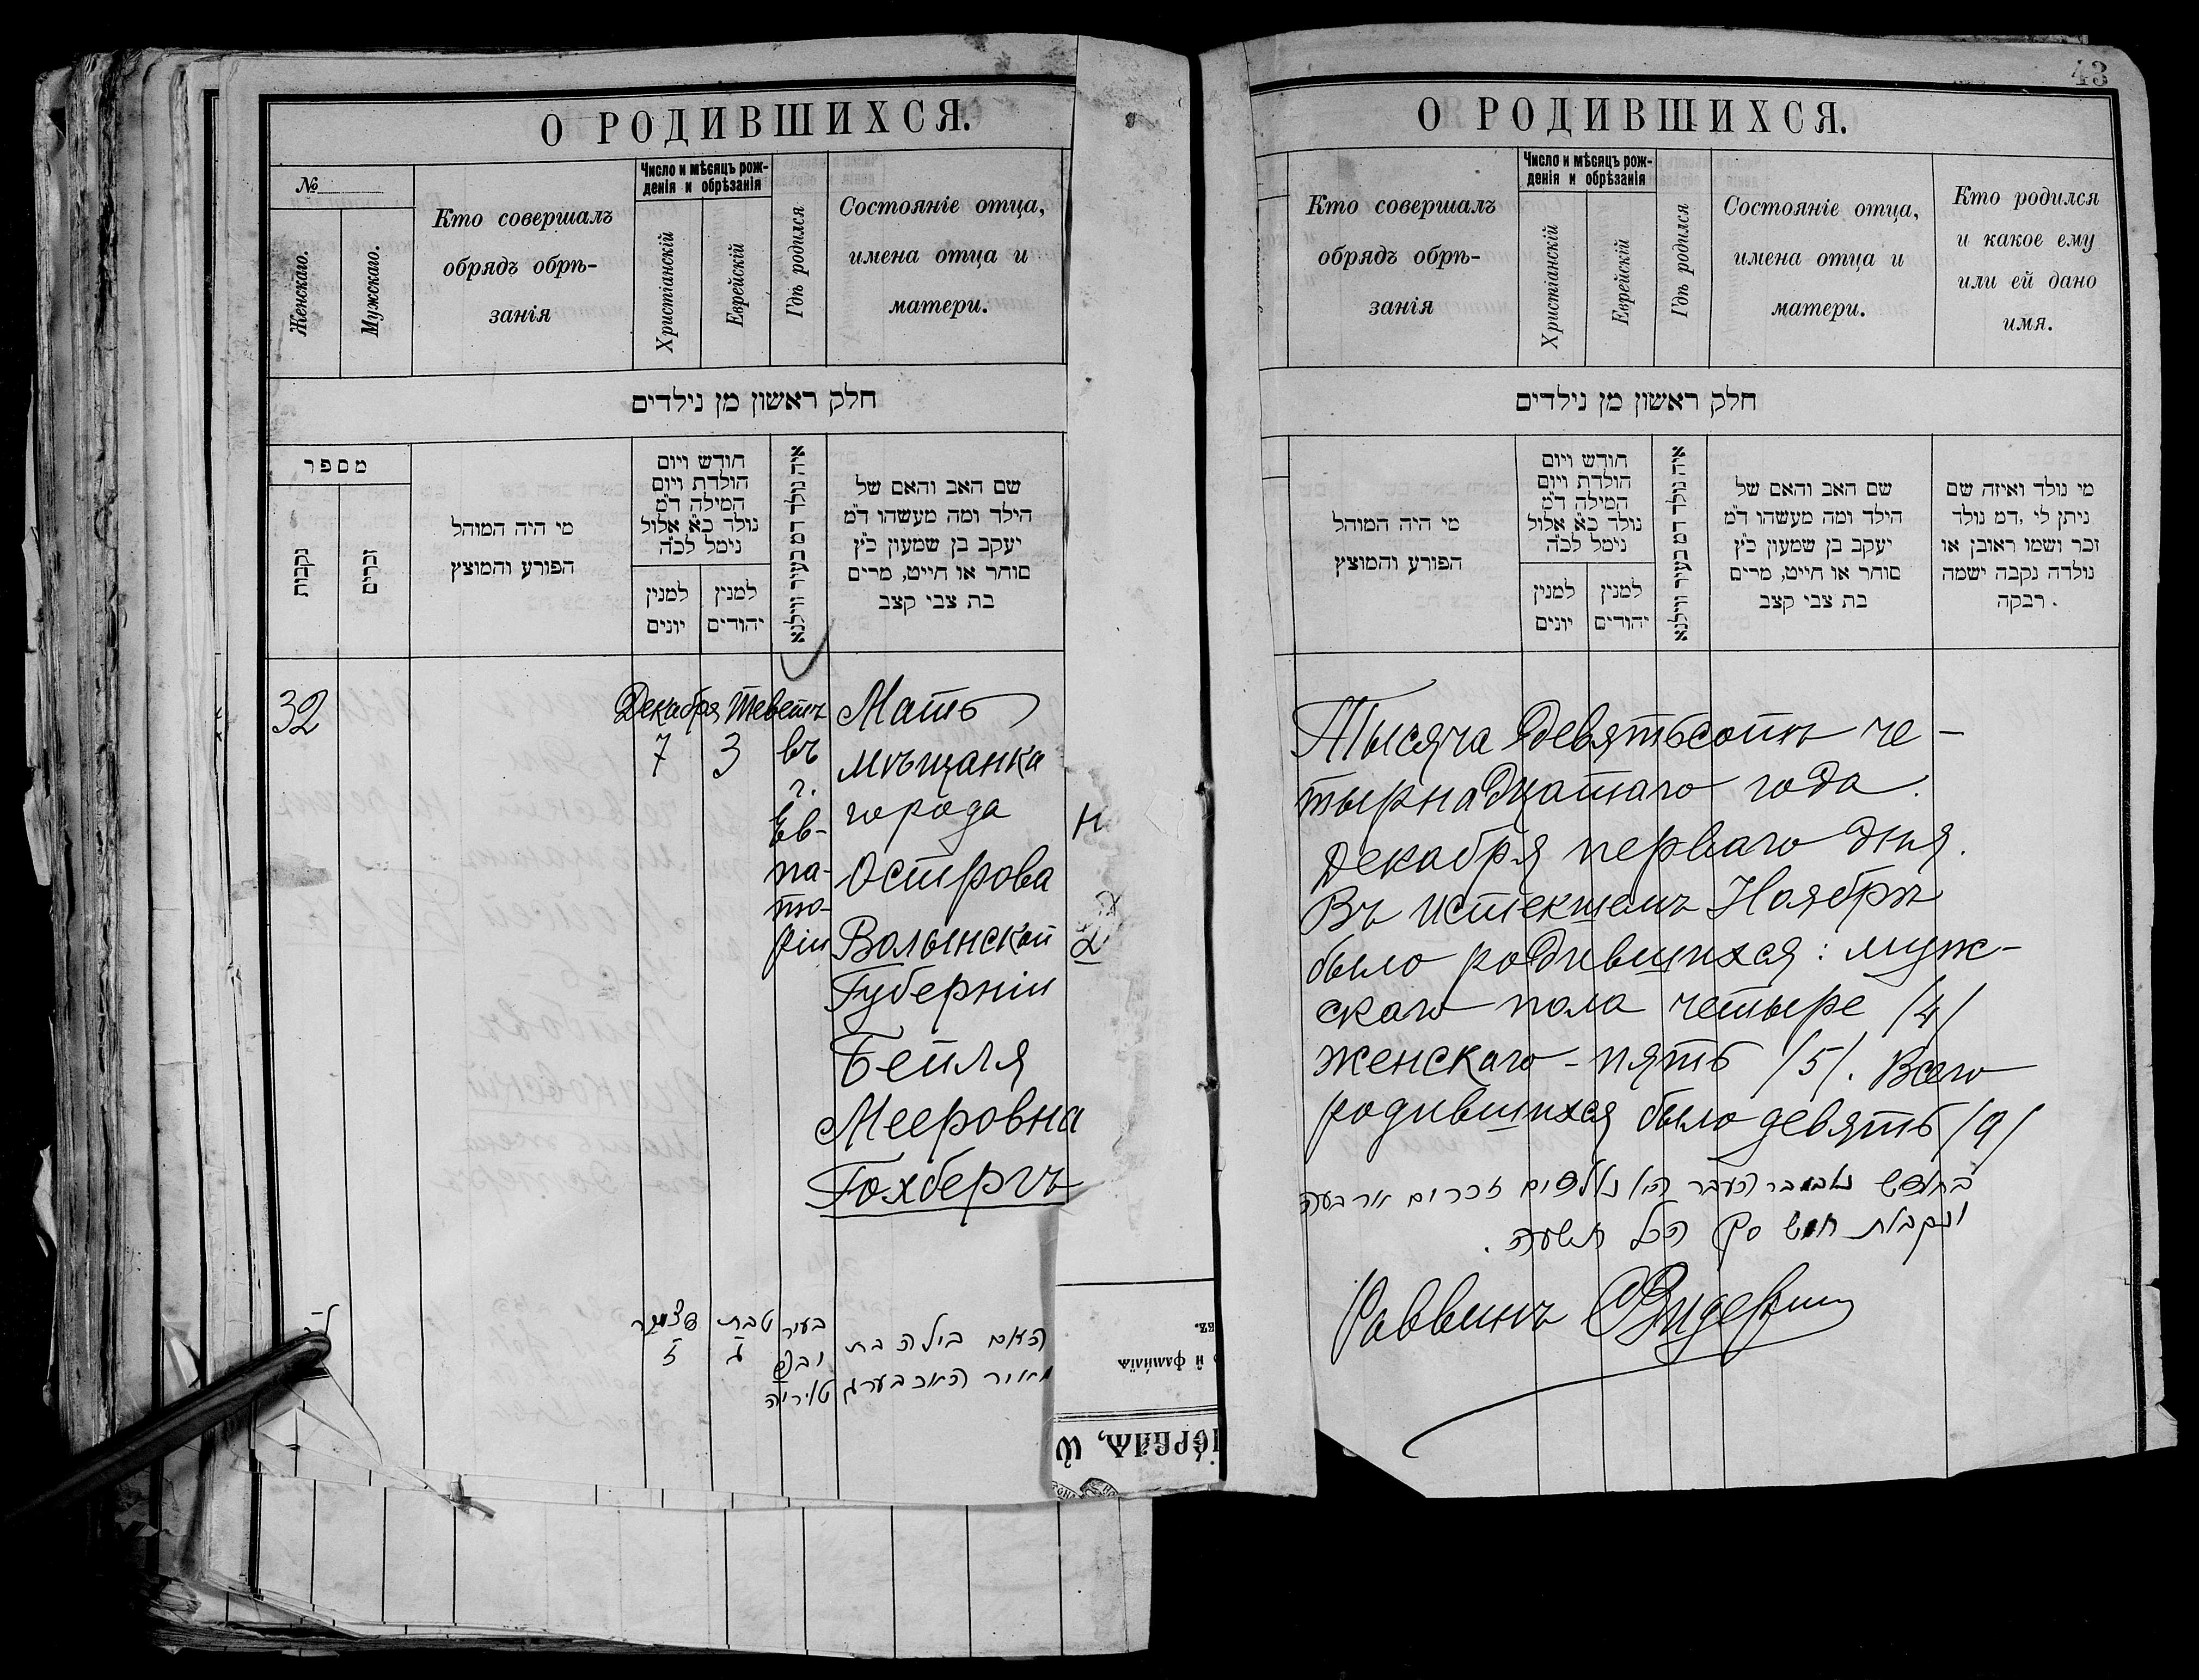 О РОДИВШИХСЯ.
№
Женскаго.
Мужскаго.
Кто совершалъ
обрядъ обрѣ-
занія
Число и мѣсяцъ рож-
денія и обрѣзанія
Христіанскій
Еврейскій
Гдѣ родился
Состояніе отца,
имена отца и
матери.
חלק ראשון מן נילדים
מספר
נקבות
זכרים
מי היה המוהל
הפורע והמוצץ
חודש ויום
הולדת ויום
המילה ד״מ
נולד כ״א אלול
נימל לכ״ה
למנין
יונים
למנין
יהודים
איה נולד דמ בעיר ווילנא
שם האב והאם של
הילד ומה מעשהו ד״מ
יעקב בן שמעון כ״ץ
סוחר או חייט, מרים
בת צבי קצב
32
Декабря Тебетъ
7 3
въ
г.
Ев-
па-
то-
ріи
Мать
мѣщанка
города
Острова
Волынской
Губерніи
Бейля
Мееровна
Гохбергъ
טבת
ז
ג
בעיר
טוריה
האם בילה בת
מאיר האכבערג
43
О РОДИВШИХСЯ.
Кто совершалъ
обрядъ обрѣ-
занія
Число и мѣсяцъ рож-
денія и обрѣзанія
Христіанскій
Еврейскій
Гдѣ родился
Состояніе отца,
имена отца и
матери.
Кто родился
и какое ему
или ей дано
имя.
חלק ראשון מן נילדים
מי היה המוהל
הפורע והמוצץ
חודש ויום
הולדת ויום
המילה ד״מ
נולד כ״א אלול
נימל לכ״ה
למנין
יונים
למנין
יהודים
איה נולד דמ בעיר ווילנא
שם האב והאם של
הילד ומה מעשהו ד״מ
יעקב בן שמעון כ״ץ
סוחר או חייט, מרים
בת צבי קצב
מי נולד ואיזה שם
ניתן לי ,דמ נולד
זכר ושמו ראובן או
נולדה נקבה ישמה
רבקה .
Тысяча девятьсотъ че-
тырнадцатаго года.
Декабря перваго дня.
Въ истекшемъ Ноябрѣ
было родившихся: муж-
скаго пола четыре /4/
женскаго - пять /5/. Всего
родившихся было девять /9/
העבר זכרים ארבעה
ונקבות חמש סך הכל תשעה.
Раввинъ